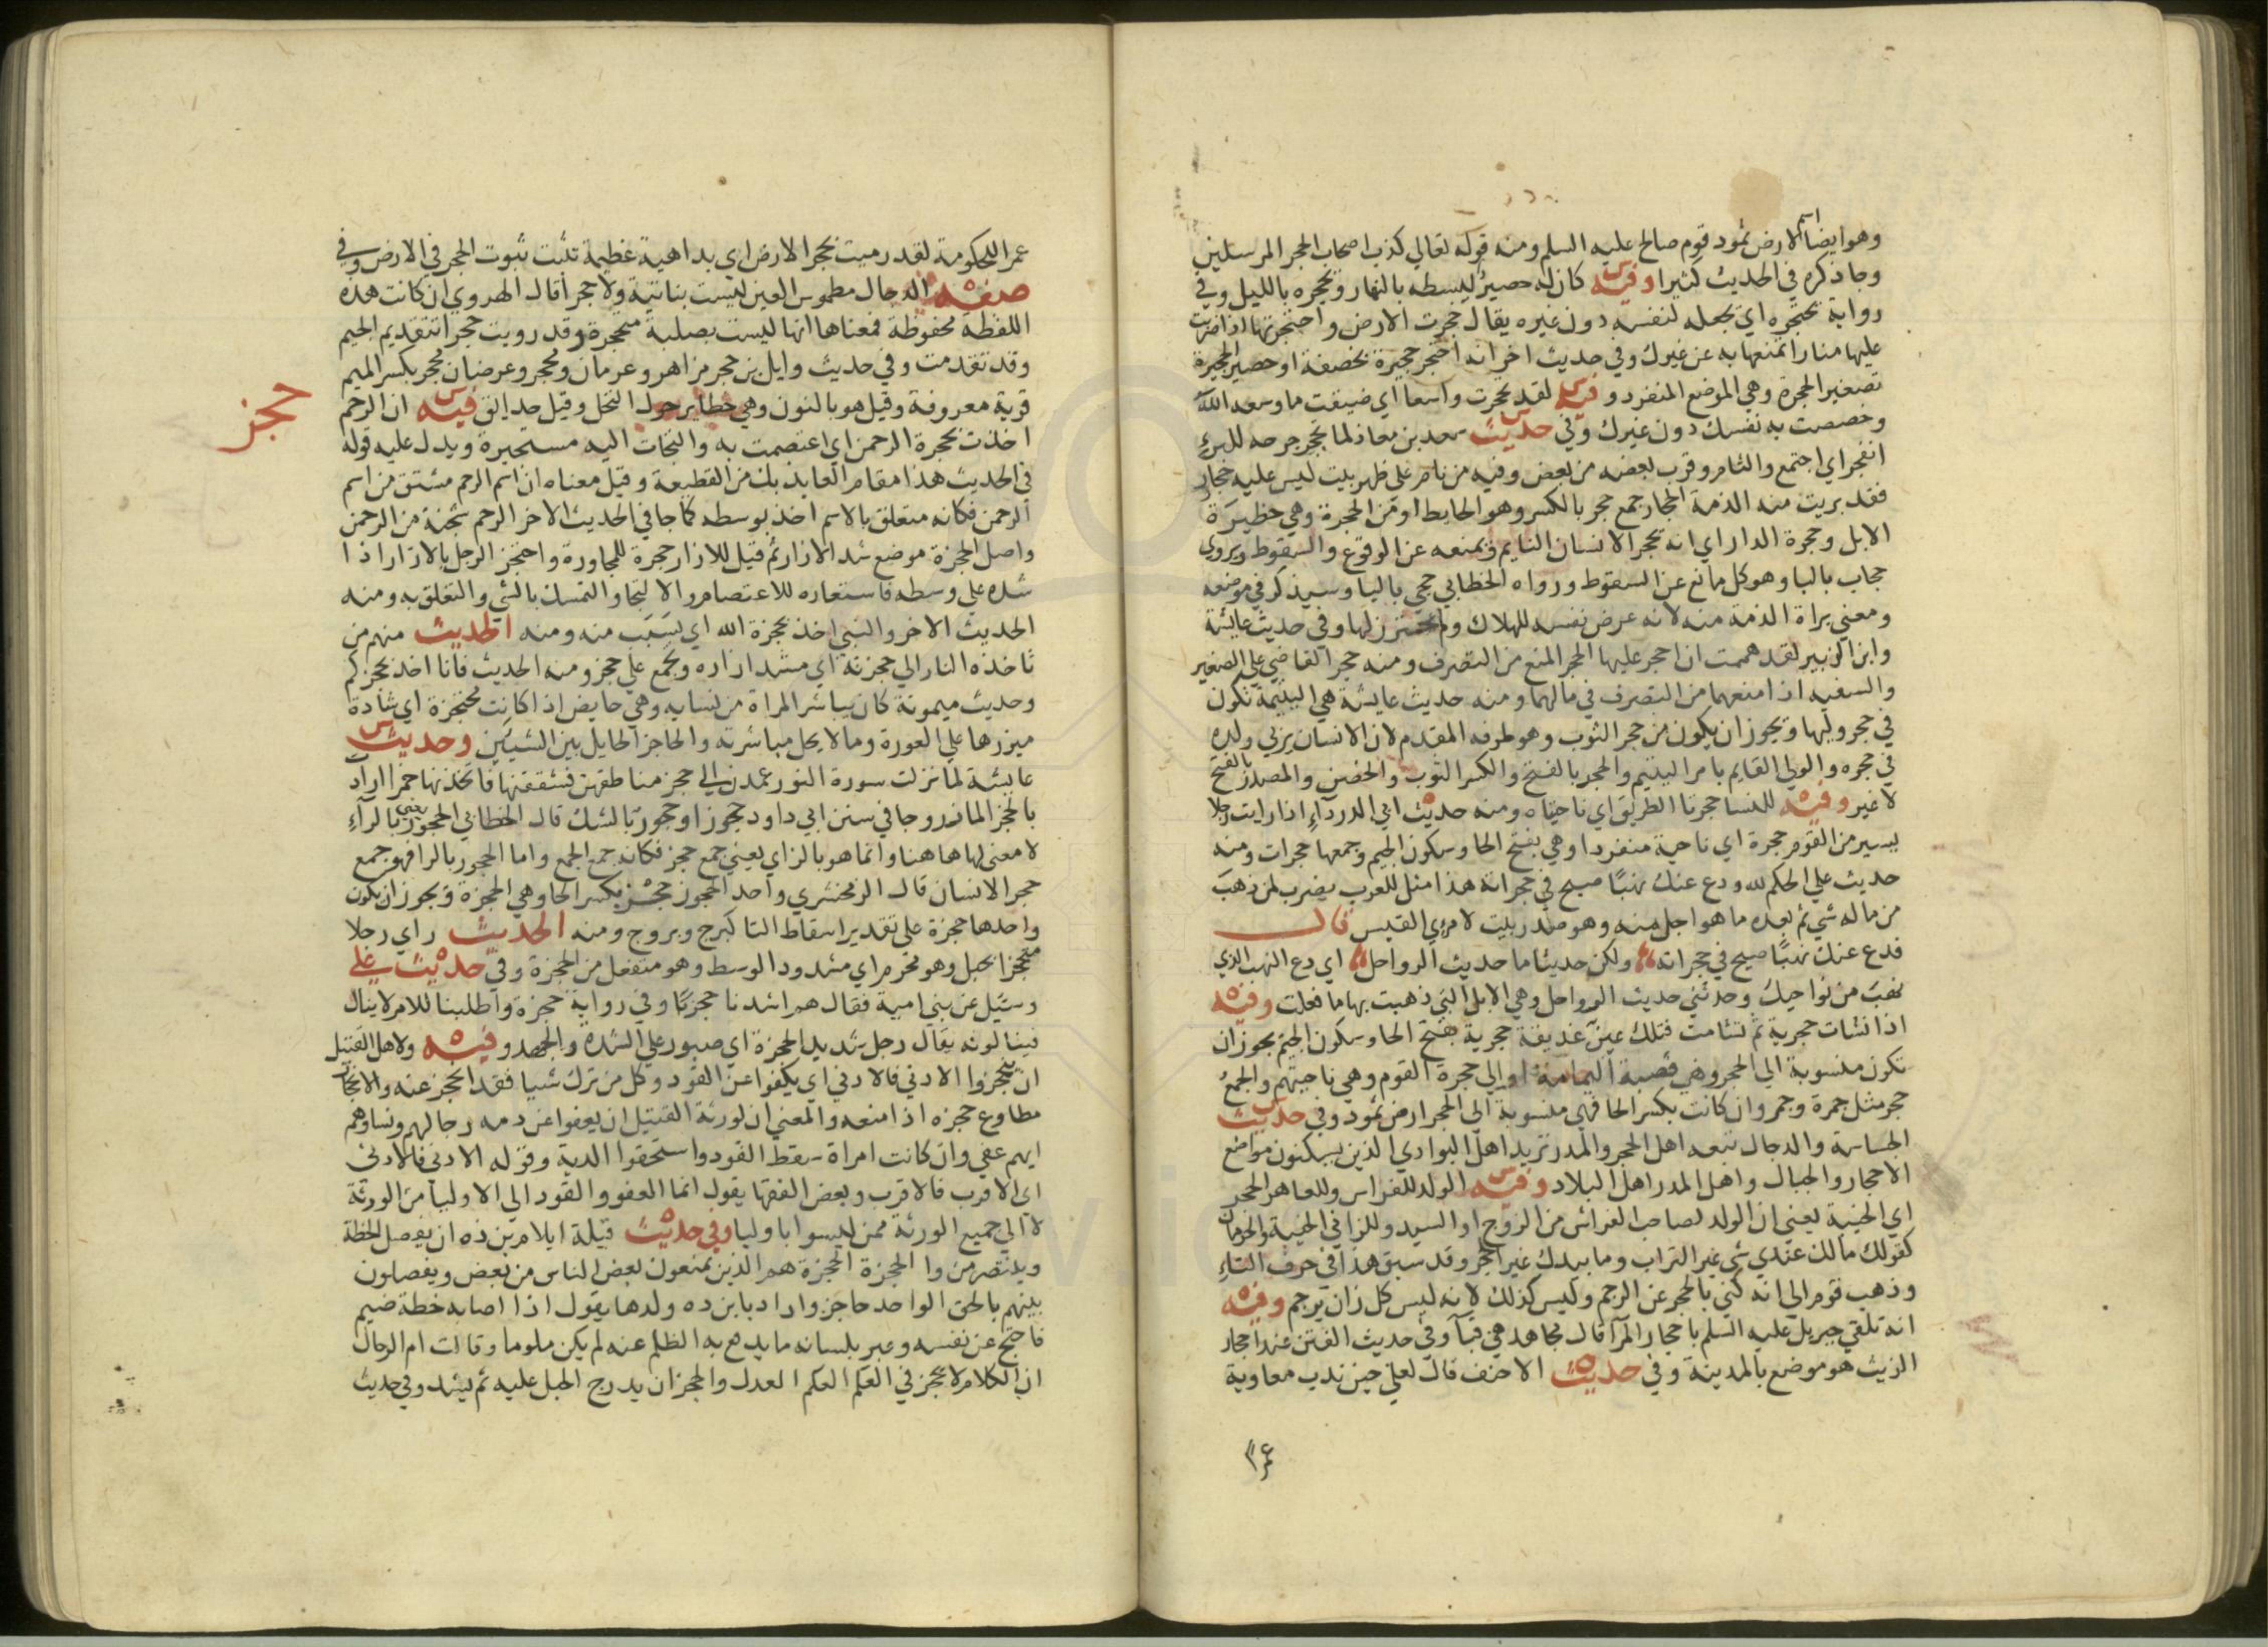 وهو ايضا اسم لارض ثمود قوم صالح عليه السلم ومنه قوله تعالي كذب اصحاب الحجر المرسلين
وجا ذكره في الحديث كثيرا وفيه س كان له حصير يبسطه بالنهار ويحجره بالليل وفي
رواية يحتجره اي يجعله لنفسه دون غيره يقال حجرت الارض واحتجرتها اذا ضربت
عليها منارا تمنعها به عن غيرك وفي حديث اخر انه احتجر حجيرة بخصفة او حصير الحجيرة
تصغير الحجرة وهي الموضع المنفرد وفيه س لقد تحجرت واسعا اي ضيقت ما وسعه الله
وخصصت به نفسك دون غيرك وفي حديث س سعد بن معاذ لما تحجر جرحه للبرء
انفجر اي اجتمع والتام وقرب بعضه من بعض وفيه من نام علي ظهر بيت ليس عليه حجار
فقد بريت منه الذمة الحجار جمع حجر بالكسر وهو الحايط او من الحجرة وهي حظيرة
الابل وحجرة الدار اي انه يحجر الانسان النايم ويمنعه عن الوقوع والسقوط ويروي
حجاب بالبا وهو كل مانع عن السقوط ورواه الخطابي حجي باليا وسيذكر في موضعه
ومعني براة الذمة منه لانه عرض نفسه للهلاك ولم يحترز لها وفي حديث عايشة
وابن الزبير لقد هممت ان احجر عليها الحجر المنع من التصرف ومنه حجر القاضي علي الصغير
والسفيه اذا منعهما من التصرف في مالهما ومنه حديث عايشة هي اليتيمة تكون
في حجر وليها ويجوز ان يكون من حجر الثوب وهو طرفه المقدم لان الانسان يربي ولده
في حجره والولي القايم بامر اليتيم والحجر بالفتح والكسر الثوب والحضن والمصدر بالفتح
لا غير وفيه ه للنسا حجرتا الطريق اي ناحيتاه ومنه حديث ه ابي الدرداء اذا رايت رجلا
يسير من القوم حجرة اي ناحية منفردا وهي بفتح الحا وسكون الجيم وجمعها حجرات ومنه
حديث علي الحكم لله ودع عنك نهبا صيح في حجراته هذا مثل للعرب يضرب لمن ذهب
من ماله شي ثم بعده ما هو اجل منه وهو صدر بيت لامري القيس قال
فدع عنك نهبا صيح في حجراته ولكن حديثا ما حديث الرواحل اي دع النهب الذي
نهب من نواحيك وحدثني حديث الرواحل وهي الابل التي ذهبت بها ما فعلت وفيه ه
اذا نشات حجرية ثم تشامت فتلك عين غديقة حجرية بفتح الحا وسكون الجيم يجوز ان
تكون منسوبة الي الحجر وهي قصبة اليمامة او الي حجرة القوم وهي ناحيتهم والجمع
حجر مثل جمرة وجمر وان كانت بكسر الحا فهي منسوبة الي الحجر ارض ثمود وفي حديث س
الجساسة والدجال تبعه اهل الحجر والمدر تريد اهل البوادي الذين يسكنون مواضع
الاحجار والجبال واهل المدر اهل البلاد وفيه س الولد للفراس وللعاهر الحجر
اي الخيبة يعني ان الولد لصاحب الفراش من الزوج او السيد وللزاني الخيبة والحرمان
كقولك مالك عندي شي غير التراب وما بيدك غير الحجر وقد سبق هذا في حرف التاء
وذهب قوم الي انه كني بالحجر عن الرجم وليس كذلك لانه ليس كل زان يرجم وفيه ه
انه تلقي جبريل عليه السلم باحجار المرا قال مجاهد هي قبا وفي حديث الفتن عند احجار
الزيث هو موضع بالمدينة وفي حديث ه الاحنف قال لعلي حين ندب معاوية
عمرا
عمرا للحكومة لقد رميت بحجر الارض اي بداهية عظيمة تثبت ثبوت الحجر في الارض وفي
صفة ه الدجال مطموس العين ليست بناتية ولا حجرا قال الهروي ان كانت هذه
اللفظة محفوظة فمعناها انها ليست بصلبة متحجرة وقد رويت جحرا بتقديم الجيم
وقد تقدمت وفي حديث وايل بن حجر مزاهر وعرمان ومحجر وعرضان محجر بكسر الميم
قرية معروفة وقيل هو بالنون وهي حظاير حول النخل وقيل حدايق فيه س ان الرحم
حجز
اخذت بحجزة الرحمن اي اعتصمت به والتجات اليه مستجيرة ويدل عليه قوله
في الحديث هذا مقام العايذ بك من القطيعة وقيل معناه ان اسم الرحم مشتق من اسم
الرحمن فكانه متعلق بالاسم اخذ بوسطه كما جا في الحديث الاخر الرحم شجنة من الرحمن
واصل الحجزة موضع شد الازار ثم قيل للازار حجزة للمجاورة واحتجز الرجل بالازار اذا
شده علي وسطه فاستعاره للاعتصام والالتجا والتمسك بالشي والتعلق به ومنه
الحديث الاخر والنبي اخذ بحجزة الله اي بسبب منه ومنه الحديث منهم من
تاخذه النار الي حجزته اي مشد ازاره ويجمع علي حجز ومنه الحديث فانا اخذ بحجزكم
وحديث ميمونة كان يباشر المراة من نسايه وهي حايض اذا كانت محتجزة اي شادة
ميزرها علي العورة وما لا يحل مباشرته والحاجز الحايل بين الشيئين وحديث س
عايشة لما نزلت سورة النور عمدن الي حجز مناطقهن فشققنها فاتخذنها خمرا اراد
بالحجز المازر وجا في سنن ابي داود حجوز او حجور بالشك قال الخطابي الحجور يعني بالراء
لا معني لها هاهنا وانما هو بالزاي يعني جمع حجز فكانه جمع الجمع واما الحجور بالرا فهو جمع
حجر الانسان قال الزمخشري واحد الحجوز حجز بكسر الحا وهي الحجزة ويجوز ان يكون
واحدها حجزة علي تقدير اسقاط التا كبرج وبروج ومنه الحديث راي رجلا
محتجزا بحبل وهو محرم اي مشدود الوسط وهو مفتعل من الحجزة وفي حديث ه علي
وسئل عن بني امية فقال هم اشدنا حجزا وفي رواية حجزة واطلبنا للامر لا ينال
فينالونه يقال رجل شديد الحجزة اي صبور علي الشدة والجهد وفيه ه ولاهل القتيل
ان ينحجزوا الادني فالادني اي يكفوا عن القود وكل من ترك شييا فقد انحجز عنه والانحجاز
مطاوع حجزه اذا منعه والمعني ان لورثة القتيل ان يعفوا عن دمه رجالهم ونساوهم
ايهم عفي وان كانت امراة سقط القود واستحقوا الدية وقوله الادني فالادني
اي الاقرب فالاقرب وبعض الفقها يقول انما العفو والقود الي الاوليا من الورثة
لا الي جميع الورثة ممن ليسوا باوليا وفي حديث ه قيلة ايلام بن ذه ان يفصل الخطة
وينتصر من ورا الحجزة الحجزة هم الذين يمنعون بعض الناس من بعض ويفصلون
بينهم بالحق الواحد حاجز واراد بابن ذه ولدها يقول اذا اصابه خطة ضيم
فاحتج عن نفسه وعبر بلسانه ما يدفع به الظلم عنه لم يكن ملوما وقالت ام الرحال
ان الكلام لا يحجز في العكم العكم العدل والحجز ان يدرج الحبل عليه ثم يشد وفي حديث